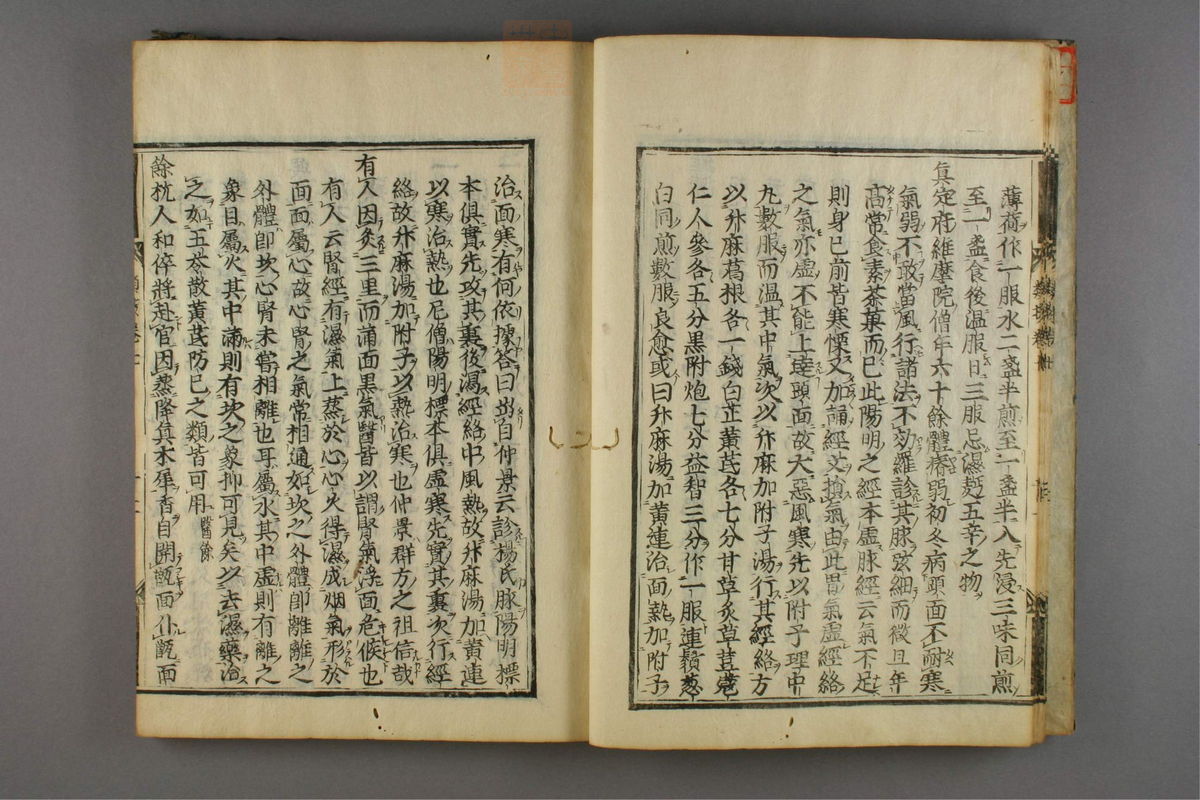 薄荷作一服水二盞半煎至一盞半入先浸三味同煎
至一盞食後温服日三服忌濕麪五辛之物
真定府維摩院僧年六十餘體瘠弱初冬病頭面不耐寒
氣弱不敢當風行諸法不効羅診其脉弦細而微且年
高常食素茶菓而已此陽明之經本虚脉經云氣不足
則身已前皆寒慄又加誦經文損氣由此胃氣虚經絡
之氣亦虚不能上達頭面故大惡風寒先以附子理中
丸數服而温其中氣次以升麻加附子湯行其經絡方
以升麻葛根各一錢白芷黄芪各七分甘草炙草荳蔲
仁人參各五分黒附炮七分益智三分作一服連鬚葱
白同煎數服良愈或曰升麻湯加黄連治面熱加附子
治面寒有何依據答曰出自仲景云診楊氏脉陽明標
本俱實先攻其裏後瀉經絡中風熱故升麻湯加黄連
以寒治熱也尼僧陽明標本俱虚寒先實其裏次行經
絡故升麻湯加附子以熱治寒也仲景群方之祖信哉
有人因灸三里而滿面黒氣醫皆以謂腎氣浮面危候也
有人云腎經有濕氣上蒸於心心火得濕成烟氣形於
面面屬心故心腎之氣常相通如坎之外體即離離之
外體即坎心腎未嘗相離也耳屬水其中虚則有離之
象目屬火其中滿則有坎之象抑可見矣以去濕藥治
之如五苓散黄芪防已之類皆可用醫餘
餘杭人和倅將赴官因蒸降真木犀香自開甑面仆甑面